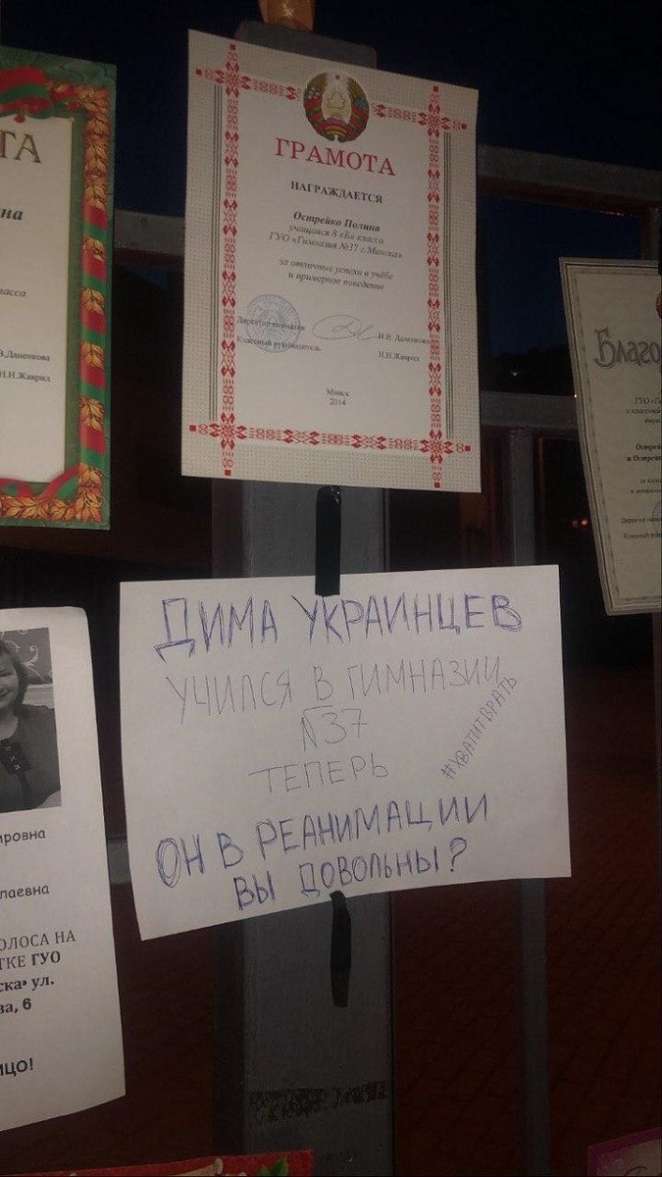 ТА
на
ласса
В.Даненкова
Н.Н.Жаврид
ГРАМОТА
НАГРАЖДАЕТСЯ
Острейко Полина
учащаяся 8 «Б» класса
ГУО «Гимназия №37 г.Минска»
за отличные успехи в учёбе
и примерное поведение
Директор гимназии
Классный руководитель
Н.Н.Жаврид
Минск
2014
Благо
ДИМА УКРАИНЦЕВ
УЧИЛСЯ В ГИМНАЗИИ
№37
ТЕПЕРЬ
#ХВАТИТВРАТЬ
ОН В РЕАНИМАЦИИ
ВЫ ДОВОЛЬНЫ?
ровна
лаевна
ОЛОСА НА
ТКЕ ГУО
ска» ул.
ва, 6
ИЦО!